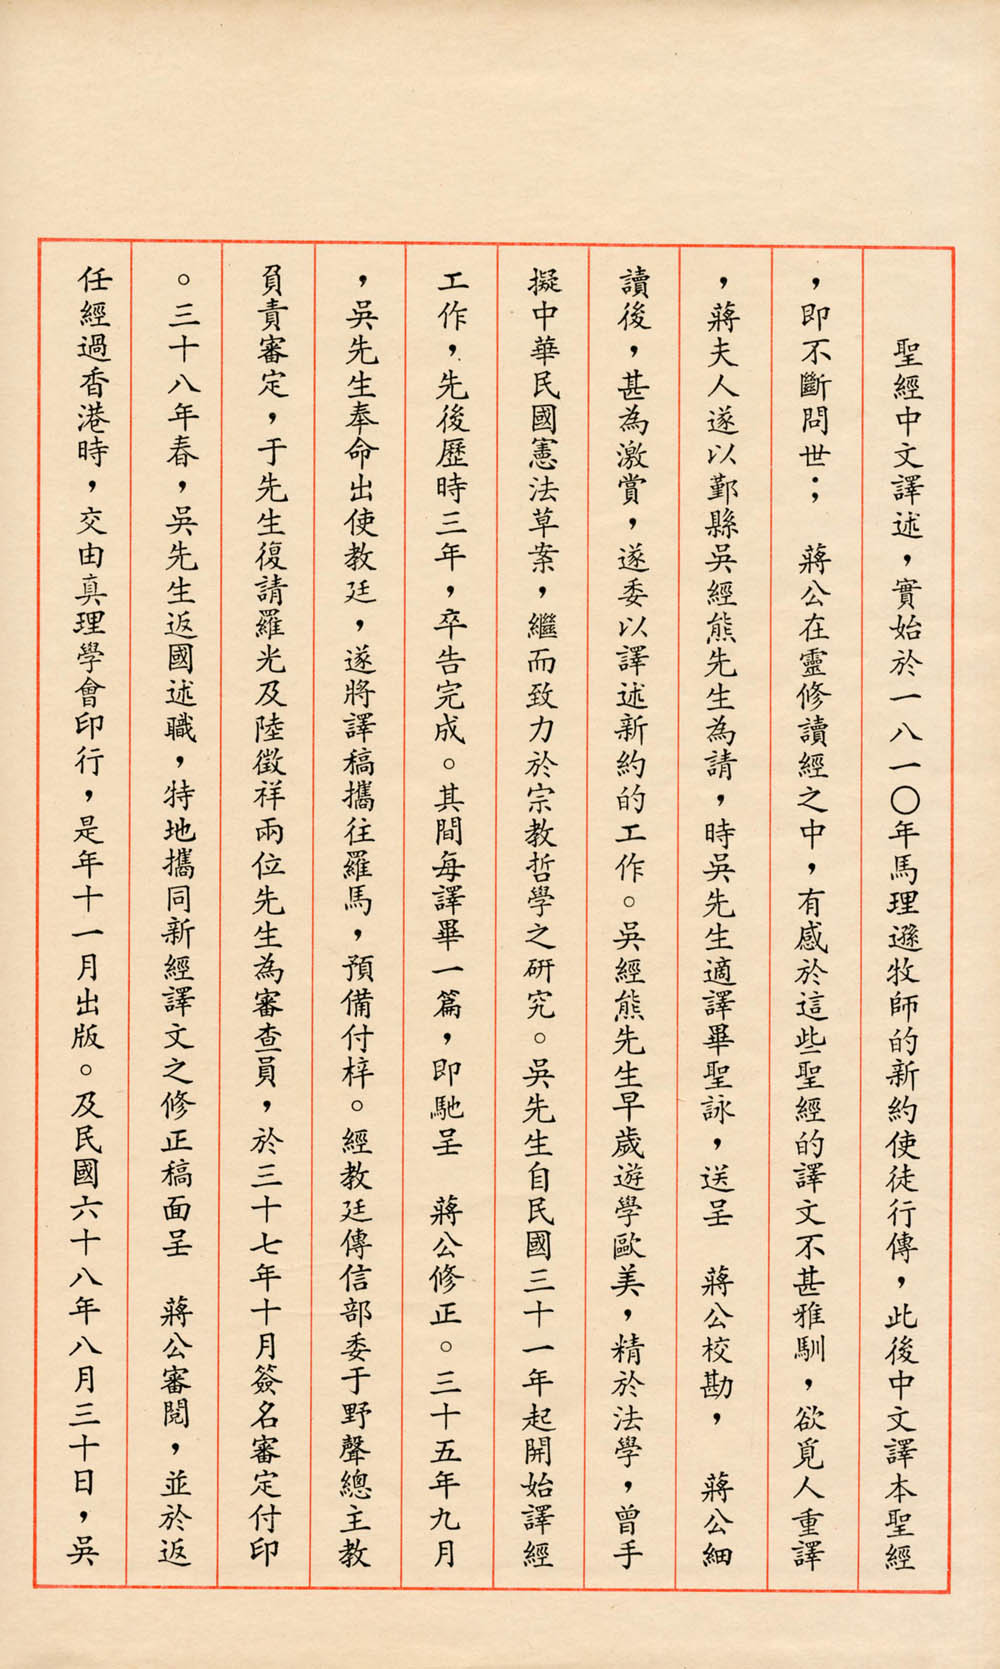 聖經中文譯述，實始於一八一〇年馬理遜牧師的新約使徒行傳，此後中文譯本聖經
，即不斷問世；　蔣公在靈修讀經之中，有感於這些聖經的譯文不甚雅馴，欲覓人重譯
，蔣夫人遂以鄞縣吳經熊先生為請，時吳先生適譯畢聖詠，送呈　蔣公校勘，　蔣公細
讀後，甚為激賞，遂委以譯述新約的工作。吳經熊先生早歲遊學歐美，精於法學，曾手
擬中華民國憲法草案，繼而致力於宗教哲學之研究。吳先生自民國三十一年起開始譯經
工作，先後歷時三年，卒告完成。其間每譯畢一篇，即馳呈　蔣公修正。三十五年九月
，吳先生奉命出使教廷，遂將譯稿攜往羅馬，預備付梓。經教廷傳信部委于野聲總主教
負責審定，于先生復請羅光及陸徵祥兩位先生為審查員，於三十七年十月簽名審定付印
。三十八年春，吳先生返國述職，特地攜同新經譯文之修正稿面呈　蔣公審閱，並於返
任經過香港時，交由真理學會印行，是年十一月出版。及民國六十八年八月三十日，吳